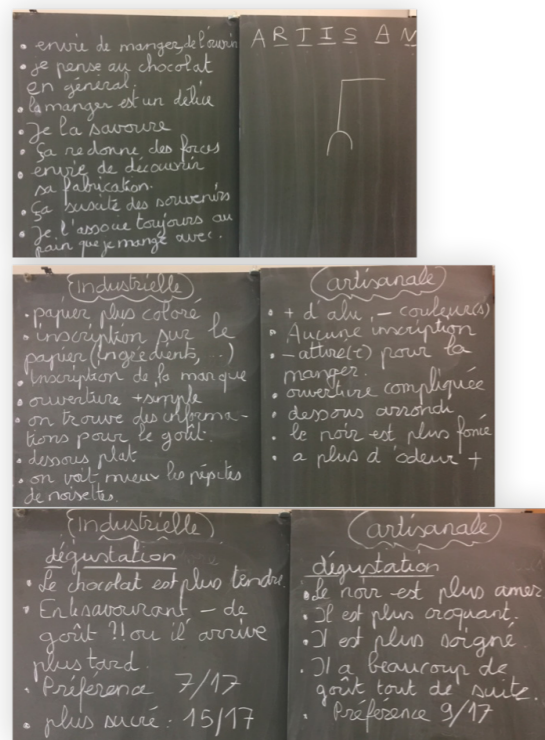 • envie de manger, de l'ouvrir
• je pense au chocolat
en général.
• le manger est un délice
• Je la savoure
• Ça redonne des forces
• envie de découvrir
sa fabrication.
• Ça suscite des souvenirs
• Je l'associe toujours au
pain que je mange avec.
A R T I S A N
(industrielle)
• papier plus coloré
• inscription sur le
papier (ingrédients, ...)
• Inscription de la marque
• ouverture + simple
• on trouve des informa-
tions pour le goût.
• dessous plat
• on voit mieux les pépites
de noisettes.
(artisanale)
• + d'alu, - couleur(s)
• Aucune inscription
• - attiré(e) pour la
manger.
• ouverture compliquée
• dessous arrondi
• le noir est plus foncé
• a plus d'odeur +
(industrielle)
dégustation
• Le chocolat est plus tendre
• En le savourant - de
goût ?! ou il arrive
plus tard.
• Préférence 7/17
• plus sucré : 15/17
(artisanale)
dégustation
• Le noir est plus amer
• Il est plus croquant.
• Il est plus soigné.
• Il a beaucoup de
goût tout de suite.
• Préférence 9/17